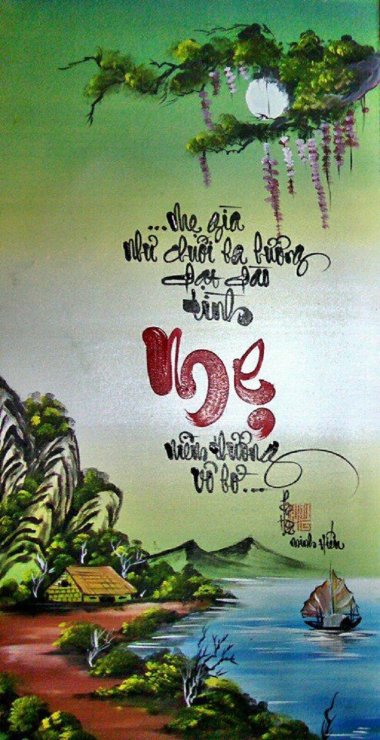 ...mẹ già
như chuối ba hương
dạt dào
tình
Mẹ
niềm thương
vô bờ...
minh